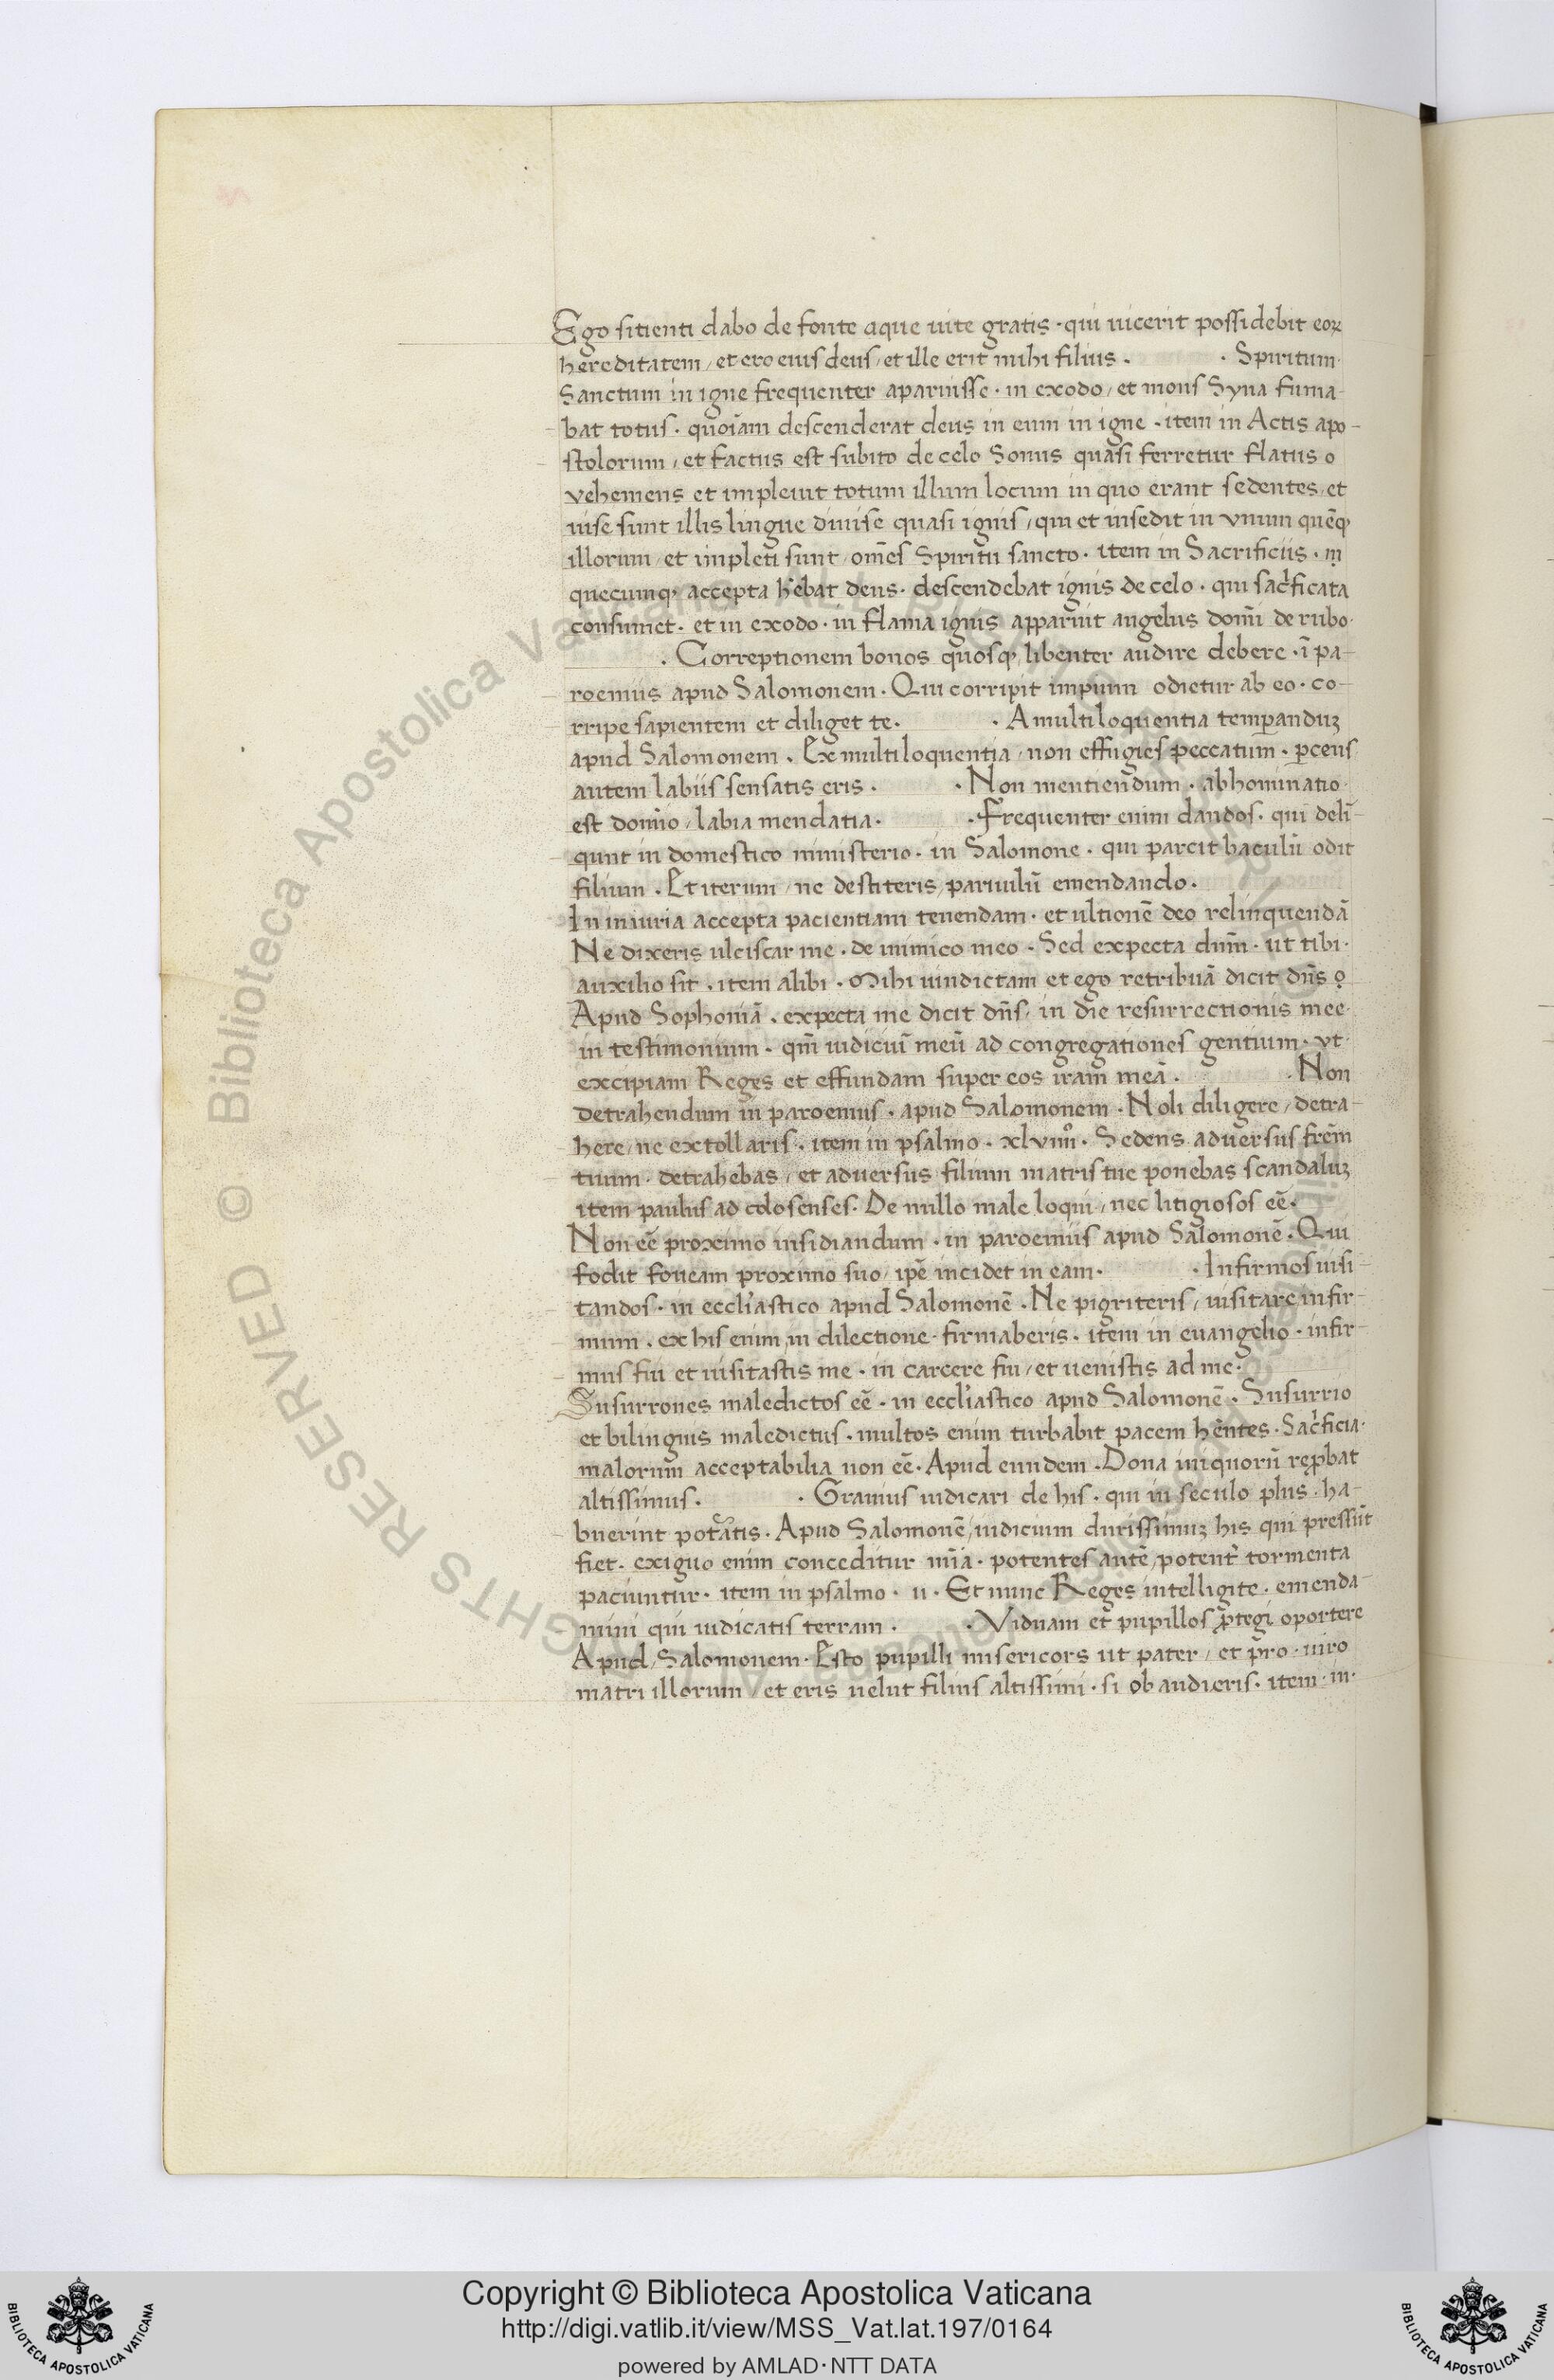 Ego sitienti dabo de fonte aque uite gratis · qui uicerit possidebit eoꝝ
hereditatem / et ero eius deus / et ille erit mihi filius · · Spiritum
Sanctum in igne frequenter aparuisse · in exodo / et mons Syna fuma-
bat totus · quoiām descenderat deus in eum in igne · item in Actis apo-
stolorum / et factus est subito de celo Sonus quasi ferretur flatus o
vehemens et impleuit totum illum locum in quo erant sedentes / et
uise sunt illis lingue diuise quasi ignis / qui et insedit in vnum quēqꝫ
illorum / et impleti sunt / om̄es Spiritu sancto · item in Sacrificiis · in
quecumqꝫ accepta h̄ebat deus · descendebat ignis de celo · qui sac̄ficata
consumet · et in exodo · in flama ignis apparuit angelus dom̄i de rubo ·
· Correptionem bonos quosqꝫ libenter audire debere · ī pa-
roemiis apud Salomonem · Qui corripit impium odietur ab eo · co-
rripe sapientem et diliget te · · A multiloquentia temꝑanduꝫ
apud Salomonem · Ex multiloquentia / non effugies peccatum · ꝑcens
autem labiis sensatis eris · · Non mentiendum · abhominatio
est domīo / labia mendatia · · Frequenter enim dandos · qui deli-
qunt in domestico ministerio · in Salomone · qui parcit baculū odit
filium · Et iterum / ne destiteris / paruulū emendando ·
In iniuria accepta pacientiam tenendam · et ultionē deo relinquendā
Ne dixeris ulciscar me · de inimico meo · Sed expecta dn̄m · ut tibi ·
auxilio sit · item alibi · Mihi uindictam et ego retribuā dicit dn̄s o
Apud Sophoniā · expecta me dicit dn̄s · in die resurrectionis mee ·
in testimonium · qm̄ iudiciūm meū ad congregationes gentium · vt ·
excipiam Reges et effundam super eos iram meā · · Non
detrahendum in paroemiis · apud Salomonem · Noli diligere / detra-
here / ne extollaris · item in psalmo · xlviiiiº · Sedens adversus fr̄em
tuum · detrahebas / et adversus filium matris tue ponebas scandaluꝫ
item paulus ad colosenses · De nullo male loqui / nec litigiosos eē ·
Non eē proximo insidiandum · in paroemiis apud Salomonē · Qui
fodit foueam proximo suo / ipē incidet in eam · · Infirmos uisi-
tandos · in eccl̓iastico apud Salomonē · Ne pigriteris / uisitare infir-
mum · ex his enim in dilectione · firmaberis · item in euangelio · infir-
mus fui et uisitastis me · in carcere fui / et uenistis ad me ·
Susurrones maledictos eē · in eccl̓iastico apud Salomonē · Susurrio
et bilinguis maledictus · multos enim turbabit pacem h̄entes · Sac̄ficia ·
malorum acceptabilia non eē · Apud eundem · Dona iniquorū reꝓbat
altissimus · · Grauius iudicari de his · qui in seculo plus · ha-
buerint potātis · Apud Salomonē / iudicium durissimuꝫ his qui pressūt
fiet · exiguo enim conceditur mīa · potentes autē / potent̄ tormenta
paciuntur · item in psalmo · ii · Et nunc Reges intelligite · emenda-
mini qui iudicatis terram · · Viduam et pupillos ꝓtegi oportere
Apud / Salomonem · Esto pupilli misericors ut pater / et pro · uiro
matri illorum / et eris uelut filius altissimi · si ob audieris · item · in ·
Copyright © Biblioteca Apostolica Vaticana
http://digi.vatlib.it/view/MSS_Vat.lat.197/0164
powered by AMLAD·NTT DATA